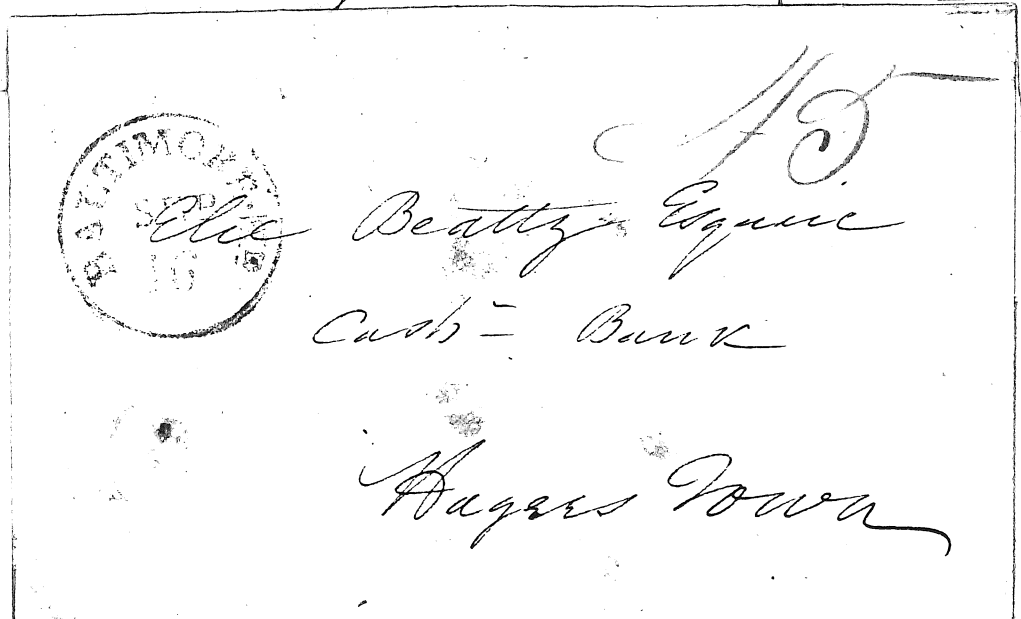 45
BALTIMORE MD
SEP
16
Elie Beatty Esquire
Cash= Bank
Hagers Town